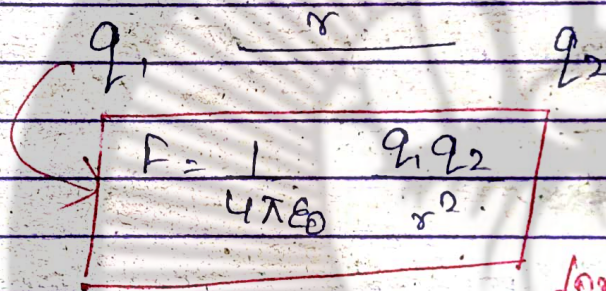 q₁ r q₂
F = 1/4πε₀ q₁q₂/r²